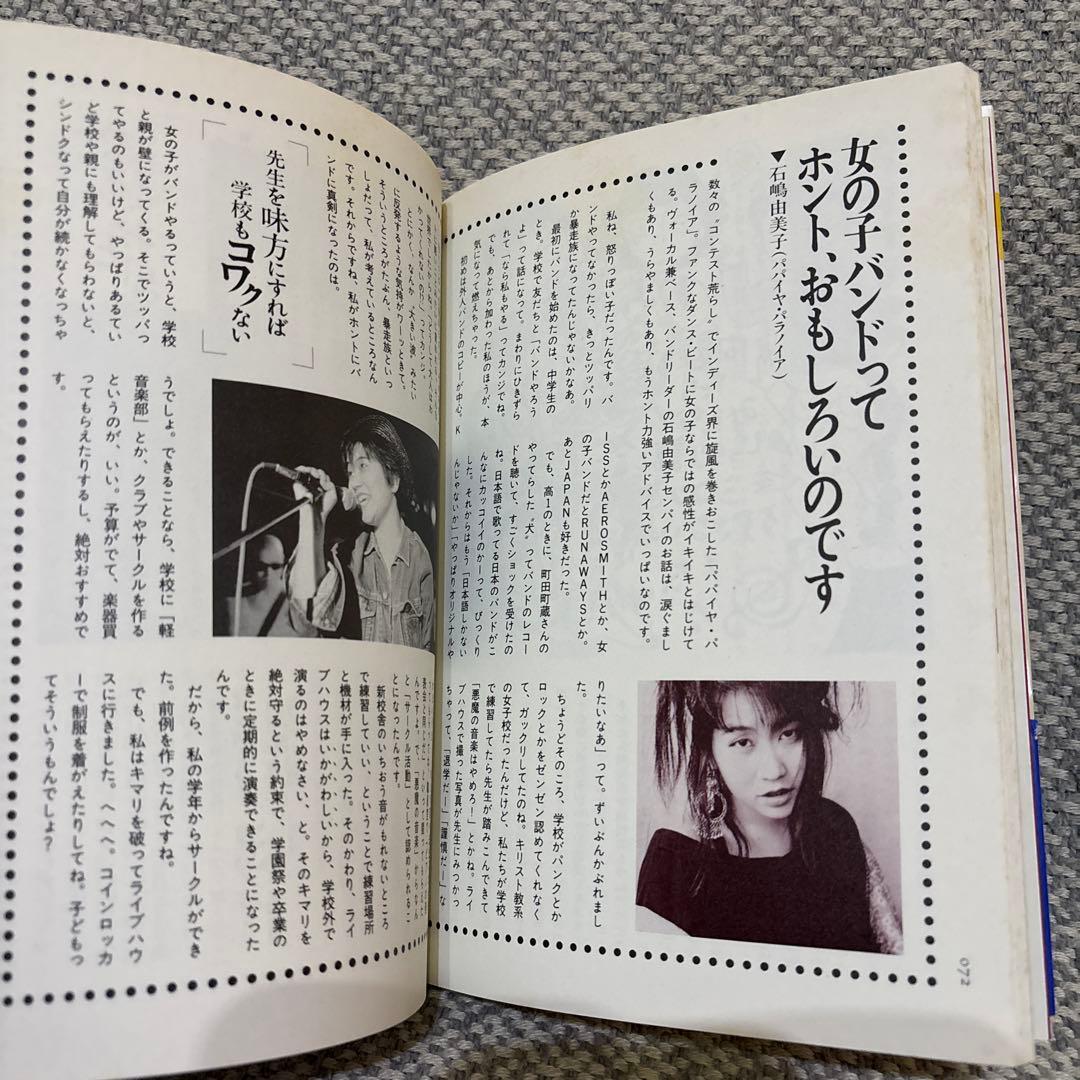 女の子バンドって
ホント、おもしろいのです
▼石嶋由美子(パパイヤ・パラノイア)
数々の〝コンテスト荒らし〟でインディーズ界に旋風を巻きおこした「パパイヤ・パ
ラノイア」。ファンクなダンス・ビートに女の子ならではの感性がイキイキとはじけて
る。ヴォーカル兼ベース、バンドリーダーの石嶋由美子センパイのお話は、涙ぐまし
くもあり、うらやましくもあり、もうホント力強いアドバイスでいっぱいなのです。
私ね、怒りっぽい子だったんです。バ
ンドやってなかったら、きっとツッパリ
か暴走族になってたんじゃないかなあ。
最初にバンドを始めたのは、中学生の
とき。学校で友だちと「バンドやろう
よ」って話になって。まわりにひきずら
れて「なら私もやる」ってカンジでね。
でも、あとから加わった私のほうが、本
気になって燃えちゃった。
初めは外人バンドのコピーが中心。K
ISSとかAEROSMITHとか、女
の子バンドだとRUNAWAYSとか。
あとJAPANも好きだった。
でも、高1のときに、町田町蔵さんの
やってらした〝犬〟ってバンドのレコー
ドを聴いて、すごくショックを受けたの
ね。日本語で歌ってる日本のバンドがこ
んなにカッコイイのかーって、びっくり
した。それからはもう「日本語しかない
んじゃないか」「やっぱりオリジナルや
りたいなあ」って。ずいぶんかぶれまし
た。
ちょうどそのころ、学校がパンクとか
ロックとかをゼンゼン認めてくれなく
て、ガックリしてたのね。キリスト教系
の女子校だったんだけど、私たちが学校
で練習してたら先生が踏みこんできて
「悪魔の音楽はやめろ!」とかね。ライ
ブハウスで撮った写真が先生にみつかっ
ちゃって、「退学だー」「謹慎だー」な
072
かってくれないの!?」ってカンジ。
とにかく、なんか〝大きい波〟みたい
に反発するような気持がワーッときて、
そういうところがたぶん、暴走族といっ
しょだって、私が考えているところなん
です。それからですね、私がホントにバ
ンドに真剣になったのは。
先生を味方にすれば
学校もコワクない
女の子がバンドやるっていうと、学校
と親が壁になってくる。そこでツッパっ
てやるのもいいけど、やっぱりあるてい
ど学校や親にも理解してもらわないと、
シンドクなって自分が続かなくなっちゃ
うでしょ。できることなら、学校に「軽
音楽部」とか、クラブやサークルを作る
というのが、いい。予算がでて、楽器買
ってもらえたりするし、絶対おすすめで
す。
んですよ。で、「悪魔の音楽」からなん
と「サークル活動」として認められるこ
とになったんです。
新校舎のいちおう音がもれないところ
で練習していい、ということで練習場所
と機材が手に入った。そのかわり、ライ
ブハウスはいかがわしいから、学校外で
演るのはやめなさい、と。そのキマリを
絶対守るという約束で、学園祭や卒業の
ときに定期的に演奏できることになった
んです。
だから、私の学年からサークルができ
た。前例を作ったんですね。
でも、私はキマリを破ってライブハウ
スに行きました。へへへ。コインロッカ
ーで制服を着がえたりしてね。子どもっ
てそういうもんでしょ?